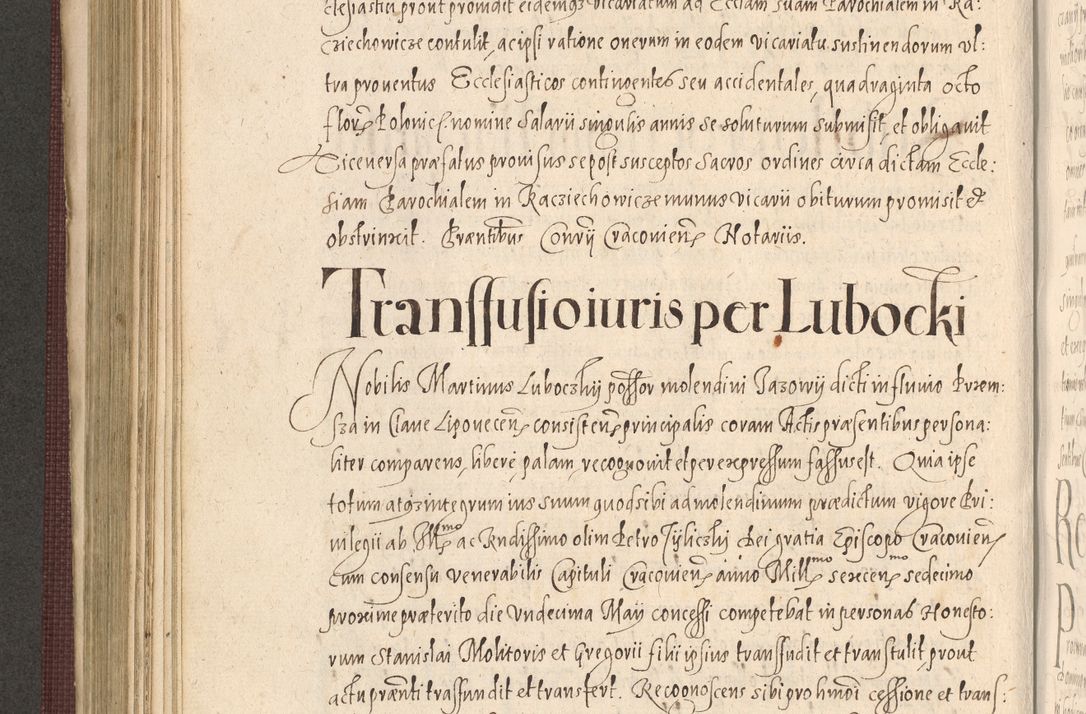 clesiastici prout providit eidemq3 vicariatum ad Ecclam suam Parochialem in Ra:
cziechowicze contulit, ac ipsi ratione onerum in eodem vicariatu sustinendorum vl:
tra proventus Ecclesiasticos contingentes seu accidentales, quadraginta octo
floren Polonic. nomine Salarii singulis annis se soluturum submisit, et obligavit
Viceversa præfatus provisus se post susceptos Sacros ordines circa dictam Eccle:
siam Parochialem in Racziechowicze munus vicarii obiturum promisit et
obstrinxit. Præntibus Conrÿ Cracovien Notariis.
Transsusio iuris per Lubocki
Nobilis Martinus Luboczkÿ possor molendini Jazowÿ dicti in fluvio Przem:
sza in Clave Lipovecen consisten principalis coram Actis præsentibus persona:
liter comparens, liberè palam, recognovit et per expressum fassus est. Quia ipse
totum atq3 integrum ius suum quod sibi ad molendinum prædictum vigore Pri:
vilegii ab Illmo ac Rndissimo olim Petro Tÿliczkÿ Dei gratia Episcopo Cracovien
cum consensu venerabilis Capituli Cracovien anno Millmo sexcenmo sedecimo
proxime præterito die Undecima Maÿ concessi competebat in personas Honesto:
rum Stanislai Molitoris et Gregorii filii ipsius transfudit et transtulit prout
actu prænti trasfundit et transfert. Recognoscens sibi pro hmoi cessione et trans: